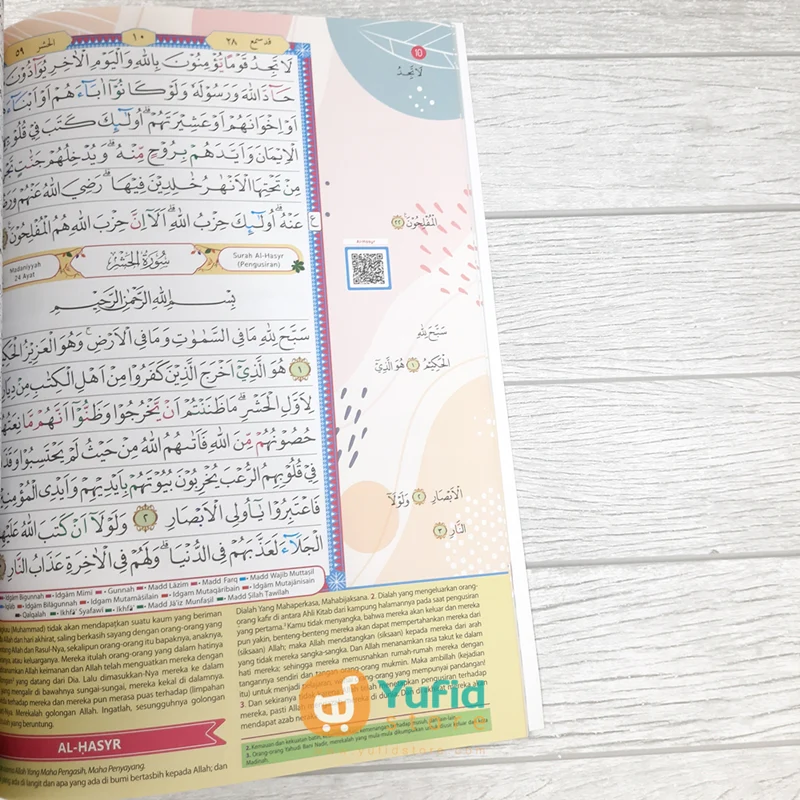 الحشر ٥٩
١٠
قد سمع ٢٨
10
لَا تَجِدُ
لَا تَجِدُ قَوْمًا يُّؤْمِنُوْنَ بِاللّٰهِ وَالْيَوْمِ الْاٰخِرِ يُوَاۤدُّوْنَ
حَاۤدَّ اللّٰهَ وَرَسُوْلَهٗ وَلَوْ كَانُوْٓا اٰبَاۤءَهُمْ اَوْ اَبْنَاۤءَهُمْ
اَوْ اِخْوَانَهُمْ اَوْ عَشِيْرَتَهُمْۗ اُولٰۤىِٕكَ كَتَبَ فِيْ
الْاِيْمَانَ وَاَيَّدَهُمْ بِرُوْحٍ مِّنْهُۗ وَيُدْخِلُهُمْ جَنّٰتٍ
مِنْ تَحْتِهَا الْاَنْهٰرُ خٰلِدِيْنَ فِيْهَاۗ رَضِيَ اللّٰهُ عَنْهُمْ
عَنْهُۗ اُولٰۤىِٕكَ حِزْبُ اللّٰهِۗ اَلَآ اِنَّ حِزْبَ اللّٰهِ هُمُ الْمُفْلِحُوْنَ
ع
الْمُفْلِحُوْنَ ٢٢
Al-Hasyr
Madaniyyah
24 Ayat
سُوْرَةُ الْحَشْرِ
Surah Al-Hasyr
(Pengusiran)
بِسْمِ اللّٰهِ الرَّحْمٰنِ الرَّحِيْمِ
سَبَّحَ لِلّٰهِ مَا فِى السَّمٰوٰتِ وَمَا فِى الْاَرْضِۚ وَهُوَ الْعَزِيْزُ
سَبَّحَ لِلّٰهِ
١ هُوَ الَّذِيْٓ اَخْرَجَ الَّذِيْنَ كَفَرُوْا مِنْ اَهْلِ الْكِتٰبِ مِنْ
الْحَكِيْمُ ١ هُوَ الَّذِيْٓ
لِاَوَّلِ الْحَشْرِۗ مَا ظَنَنْتُمْ اَنْ يَّخْرُجُوْا وَظَنُّوْٓا اَنَّهُمْ
حُصُوْنُهُمْ مِّنَ اللّٰهِ فَاَتٰىهُمُ اللّٰهُ مِنْ حَيْثُ لَمْ يَحْتَسِبُوْا
فِيْ قُلُوْبِهِمُ الرُّعْبَ يُخْرِبُوْنَ بُيُوْتَهُمْ بِاَيْدِيْهِمْ وَاَيْدِى
فَاعْتَبِرُوْا يٰٓاُولِى الْاَبْصَارِ ٢ وَلَوْلَآ اَنْ كَتَبَ اللّٰهُ
الْاَبْصَارِ ٢ وَلَوْلَآ
الْجَلَاۤءَ لَعَذَّبَهُمْ فِى الدُّنْيَاۗ وَلَهُمْ فِى الْاٰخِرَةِ عَذَابُ النَّارِ
النَّارِ ٣
Idgām Bigunnah Idgām Mimi Gunnah Madd Lāzim Madd Farq Madd Wajib Muttaṣil
Idgām Bilāgunnah Idgam Mutamāṡilain Idgam Mutaqāribain Idgam Mutajānisain
Qalqalah Ikhfā' Syafawi Ikhfā' Madd Jā'iz Munfaṣil Madd Ṣilah Ṭawilah
(Muhammad) tidak akan mendapatkan suatu kaum yang beriman
Allah dan hari akhirat, saling berkasih sayang dengan orang-orang yang
Allah dan Rasul-Nya, sekalipun orang-orang itu bapaknya, anaknya,
atau keluarganya. Mereka itulah orang-orang yang dalam hatinya
Allah keimanan dan Allah telah menguatkan mereka dengan
yang datang dari Dia. Lalu dimasukkan-Nya mereka ke dalam
yang mengalir di bawahnya sungai-sungai, mereka kekal di dalamnya.
terhadap mereka dan mereka pun merasa puas terhadap (limpahan
Merekalah golongan Allah. Ingatlah, sesungguhnya golongan
yang beruntung.
AL-ḤASYR
Allah Yang Maha Pengasih, Maha Penyayang.
ada di langit dan apa yang ada di bumi bertasbih kepada Allah; dan
Dialah Yang Mahaperkasa, Mahabijaksana. 2. Dialah yang mengeluarkan orang-
orang kafir di antara Ahli Kitab dari kampung halamannya pada saat pengusiran
yang pertama. Kamu tidak menyangka, bahwa mereka akan keluar dan mereka
pun yakin, benteng-benteng mereka akan dapat mempertahankan mereka dari
(siksaan) Allah; maka Allah mendatangkan (siksaan) kepada mereka dari arah
yang tidak mereka sangka-sangka. Dan Allah menanamkan rasa takut ke dalam
hati mereka; sehingga mereka memusnahkan rumah-rumah mereka dengan
tangannya sendiri dan tangan orang-orang mukmin. Maka ambillah (kejadian
itu) untuk menjadi
3.
mereka, pasti Allah
mendapat azab
Yufid
STORE
yufidstore.com